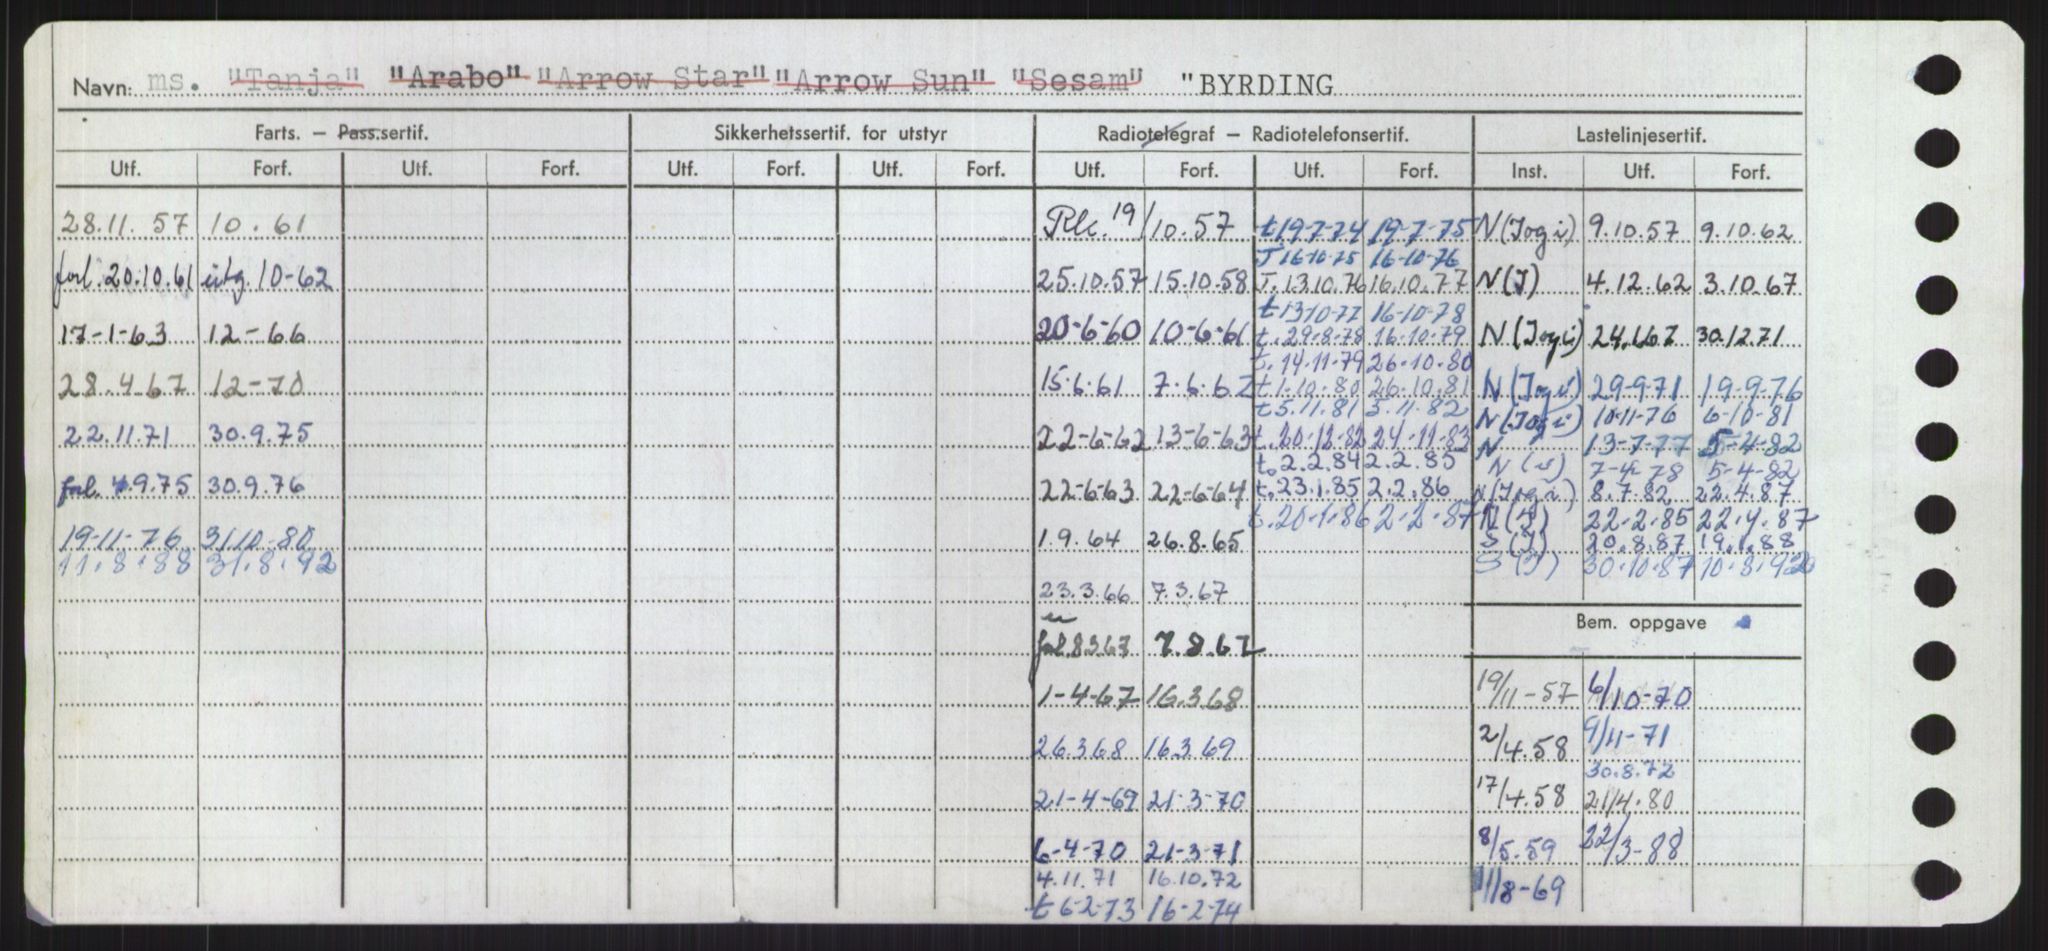 Navn: ms. "Tanja" "Arabo" "Arrow Star" "Arrow Sun" "Sesam" "BYRDING
Farts. – Pass.sertif. Sikkerhetssertif. for utstyr Radiotelegraf – Radiotelefonsertif. Lastelinjesertif.
Utf. Forf. Utf. Forf. Utf. Forf. Utf. Forf. Utf. Forf. Utf. Forf. Inst. Utf. Forf.
28.11.57 10.61
forl. 20.10.61 utg. 10-62
17-1-63 12-66
28.4.67 12-70
22.11.71 30.9.75
forl. 4.9.75 30.9.76
19-11-76 31.10.80
11.8.88 31.8.92
Rk. 19/10.57
25.10.57 15.10.58
20-6-60 10-6-61
15.6.61 7.6.62
22-6-62 13-6-63
22-6-63 22-6-64
1.9.64 26.8.65
23.3.66 7.3.67
forl. 8.3.67 7.8.67
1-4-67 16.3.68
26.3.68 16.3.69
21-4-69 21-3-70
6-4-70 21-3-71
4.11.71 16.10.72
t 6-2-73 16-2-74
t 19-7-74 19-7-75
T 16-10-75 16-10-76
T. 13.10.76 16.10.77
t 13-10-77 16-10-78
t. 29-8-78 16-10-79
t. 14-11-79 26-10-80
t 1-10-80 26-10-81
t 5.11.81 5.11.82
t. 20-12-82 24-11-83
t. 2.2.84 2.2.85
t. 23.1.85 2.2.86
t. 20-1-86 2-2-87
N (I og i) 9.10.57 9.10.62
N (I) 4.12.62 3.10.67
N (I og i) 24.1.67 30.12.71
N (I og i) 29-9-71 19-9-76
N (I og i) 10-11-76 6-10-81
N 13-7-77 5-4-82
N 7-4-78 5-4-82
N (I og i) 8.7.82 22.4.87
N (I) 22-2-85 22.4.87
S (I) 20.8.87 19.1.88
S (I) 30.10.87 10.8.92
Bem. oppgave
19/11-57 6/10-70
2/4.58 9/11-71
30.8.72
17/4.58 21/4.80
8/5.59 22/3-88
11/8-69